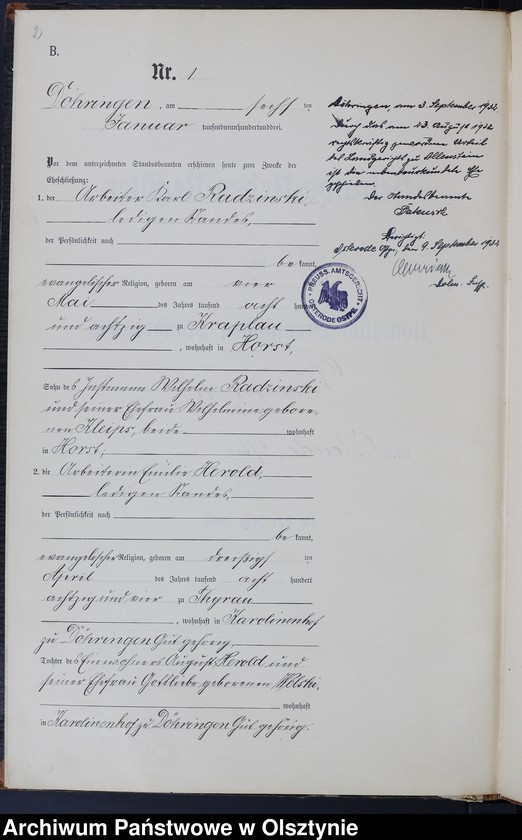 2
B.
Nr. 1
Döhringen, am sechsten
Januar tausendneunhundertunddrei.
Vor dem unterzeichneten Standesbeamten erschienen heute zum Zwecke der
Eheschließung:
1. der Arbeiter Karl Radzinski,
ledigen Standes,
der Persönlichkeit nach
bekannt,
evangelischer Religion, geboren am vier
Mai des Jahres tausend acht hundert
und achtzig zu Kraplau
, wohnhaft in Horst,
Sohn des Instmann Wilhelm Radzinski
und seiner Ehefrau Wilhelmine gebore-
nen Kleips, beide wohnhaft
in Horst;
2. die Arbeiterin Emilie Herold,
ledigen Standes,
der Persönlichkeit nach
bekannt,
evangelischer Religion, geboren am dreißigsten
April des Jahres tausend acht hundert
achtzig und vier zu Thyrau
, wohnhaft in Karolinenhof
zu Döhringen Gut gehörig,
Tochter des Einwohners August Herold und
seiner Ehefrau Gottliebe geborenen
wohnhaft
in Karolinenhof zu Döhringen Gut gehörig.
Döhringen, am 3. September 1932
Durch das am 23. August 1932
rechtskräftig gewordene Urteil
des Landgerichts zu Allenstein
ist die nebenbeurkundete Ehe
geschieden.
Der Standesbeamte
Osterode Opr., den 9. September 1932
PREUSS. AMTSGERICHT
OSTERODE OSTPR.
Archiwum Państwowe w Olsztynie